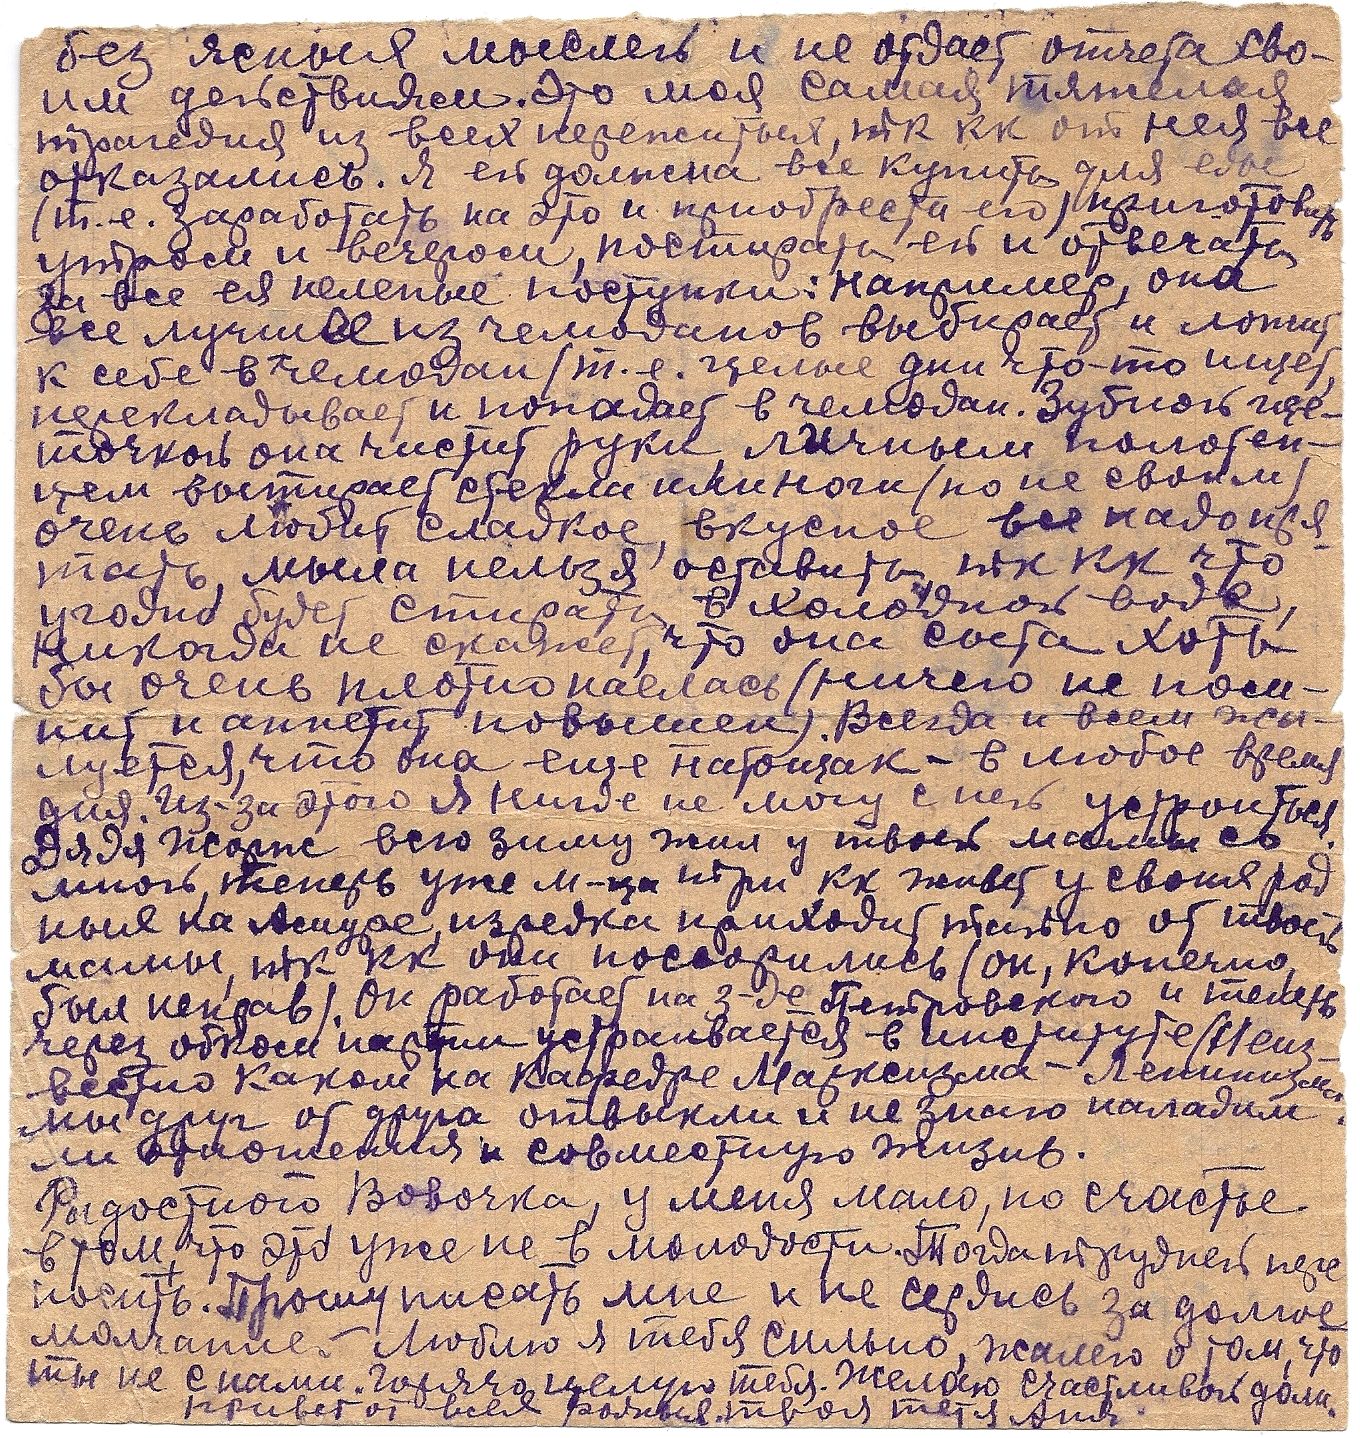 без ясныя мыслей и не отдает отчета сво-
им действиям. Это моя самая тяжелая
трагедия из всех пережитыя, тк кк от нея все
отказались. Я ей должна все купить для еды
(т.е. заработать на это и приобрести его) приготовить
утром и вечером, постирать ей и отвечать
за все ея нелепые поступки: например, она
все лучшие из чемоданов выбирает и ложит
к себе в чемодан (т.е. целые дни что-то ищет,
перекладывает и попадает в чемодан. Зубной ще-
точкой она чистит руки личным полотен-
цем вытирает стекла или ноги (но не своим)
очень любит сладкое, вкусное все надо пря-
тать, мыла нельзя оставить тк кк что
угодно будет стирать в холодной воде,
никогда не скажет, что она сыта хоть
бы очень плотно наелась (ничего не пом-
нит и аппетит повышен). Всегда и всем жа-
луется, что она еще натощак - в любое время
дня. Из-за этого я нигде не могу с ней устроиться.
Дядя Жорж всю зиму жил у твоей мамы со
мной, теперь уже м-ца три кк живет у своия род
ныя на Амуре, изредка приходит тайно от твоей
мамы, тк кк они поссорились (он, конечно,
был неправ). Он работает на з-де Петровского и теперь
через обком партии устраивается в институте (Неиз-
вестно каком на кафедре Марксизма - Ленинизма.
мы друг от друга отвыкли и не знаю наладим
ли отношения и совместную жизнь.
Радостного Вовочка, у меня мало, но счастье
в том, что это уже не в молодости. Тогда трудней пере
носить. Прошу писать мне и не сердись за долгое
молчание - Люблю я тебя сильно, жалею о том, что
ты не с нами. Горячо целую тебя. Желаю счастливой доли.
Привет от всея родныя. твоя тетя Аня.